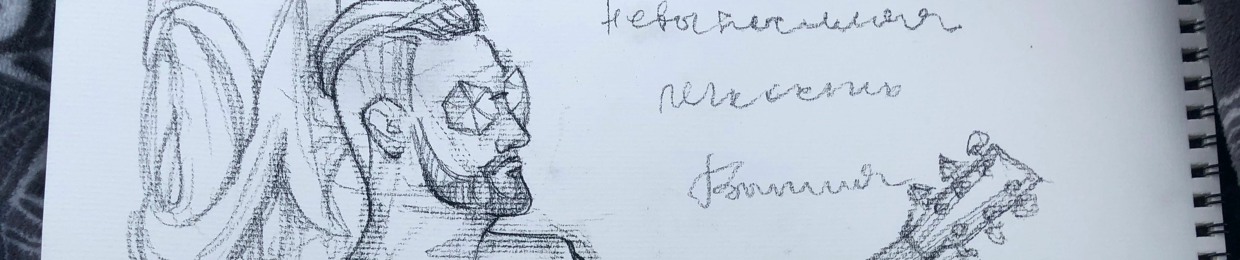 Невыносимая
легкость
Бытия